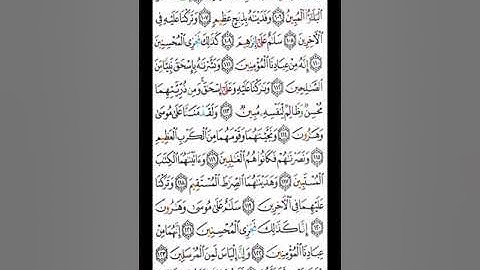 ٱلۡبَلَٰٓؤُاْ ٱلۡمُبِينُ ١٠٦ وَفَدَيۡنَٰهُ بِذِبۡحٍ عَظِيمٖ ١٠٧ وَتَرَكۡنَا عَلَيۡهِ فِي
ٱلۡأٓخِرِينَ ١٠٨ سَلَٰمٌ عَلَىٰٓ إِبۡرَٰهِيمَ ١٠٩ كَذَٰلِكَ نَجۡزِي ٱلۡمُحۡسِنِينَ
١١٠ إِنَّهُۥ مِنۡ عِبَادِنَا ٱلۡمُؤۡمِنِينَ ١١١ وَبَشَّرۡنَٰهُ بِإِسۡحَٰقَ نَبِيّٗا مِّنَ
ٱلصَّٰلِحِينَ ١١٢ وَبَٰرَكۡنَا عَلَيۡهِ وَعَلَىٰٓ إِسۡحَٰقَۚ وَمِن ذُرِّيَّتِهِمَا
مُحۡسِنٞ وَظَالِمٞ لِّنَفۡسِهِۦ مُبِينٞ ١١٣ وَلَقَدۡ مَنَنَّا عَلَىٰ مُوسَىٰ
وَهَٰرُونَ ١١٤ وَنَجَّيۡنَٰهُمَا وَقَوۡمَهُمَا مِنَ ٱلۡكَرۡبِ ٱلۡعَظِيمِ
١١٥ وَنَصَرۡنَٰهُمۡ فَكَانُواْ هُمُ ٱلۡغَٰلِبِينَ ١١٦ وَءَاتَيۡنَٰهُمَا ٱلۡكِتَٰبَ
ٱلۡمُسۡتَبِينَ ١١٧ وَهَدَيۡنَٰهُمَا ٱلصِّرَٰطَ ٱلۡمُسۡتَقِيمَ ١١٨ وَتَرَكۡنَا
عَلَيۡهِمَا فِي ٱلۡأٓخِرِينَ ١١٩ سَلَٰمٌ عَلَىٰ مُوسَىٰ وَهَٰرُونَ
١٢٠ إِنَّا كَذَٰلِكَ نَجۡزِي ٱلۡمُحۡسِنِينَ ١٢١ إِنَّهُمَا مِنۡ
عِبَادِنَا ٱلۡمُؤۡمِنِينَ ١٢٢ وَإِنَّ إِلۡيَاسَ لَمِنَ ٱلۡمُرۡسَلِينَ ١٢٣